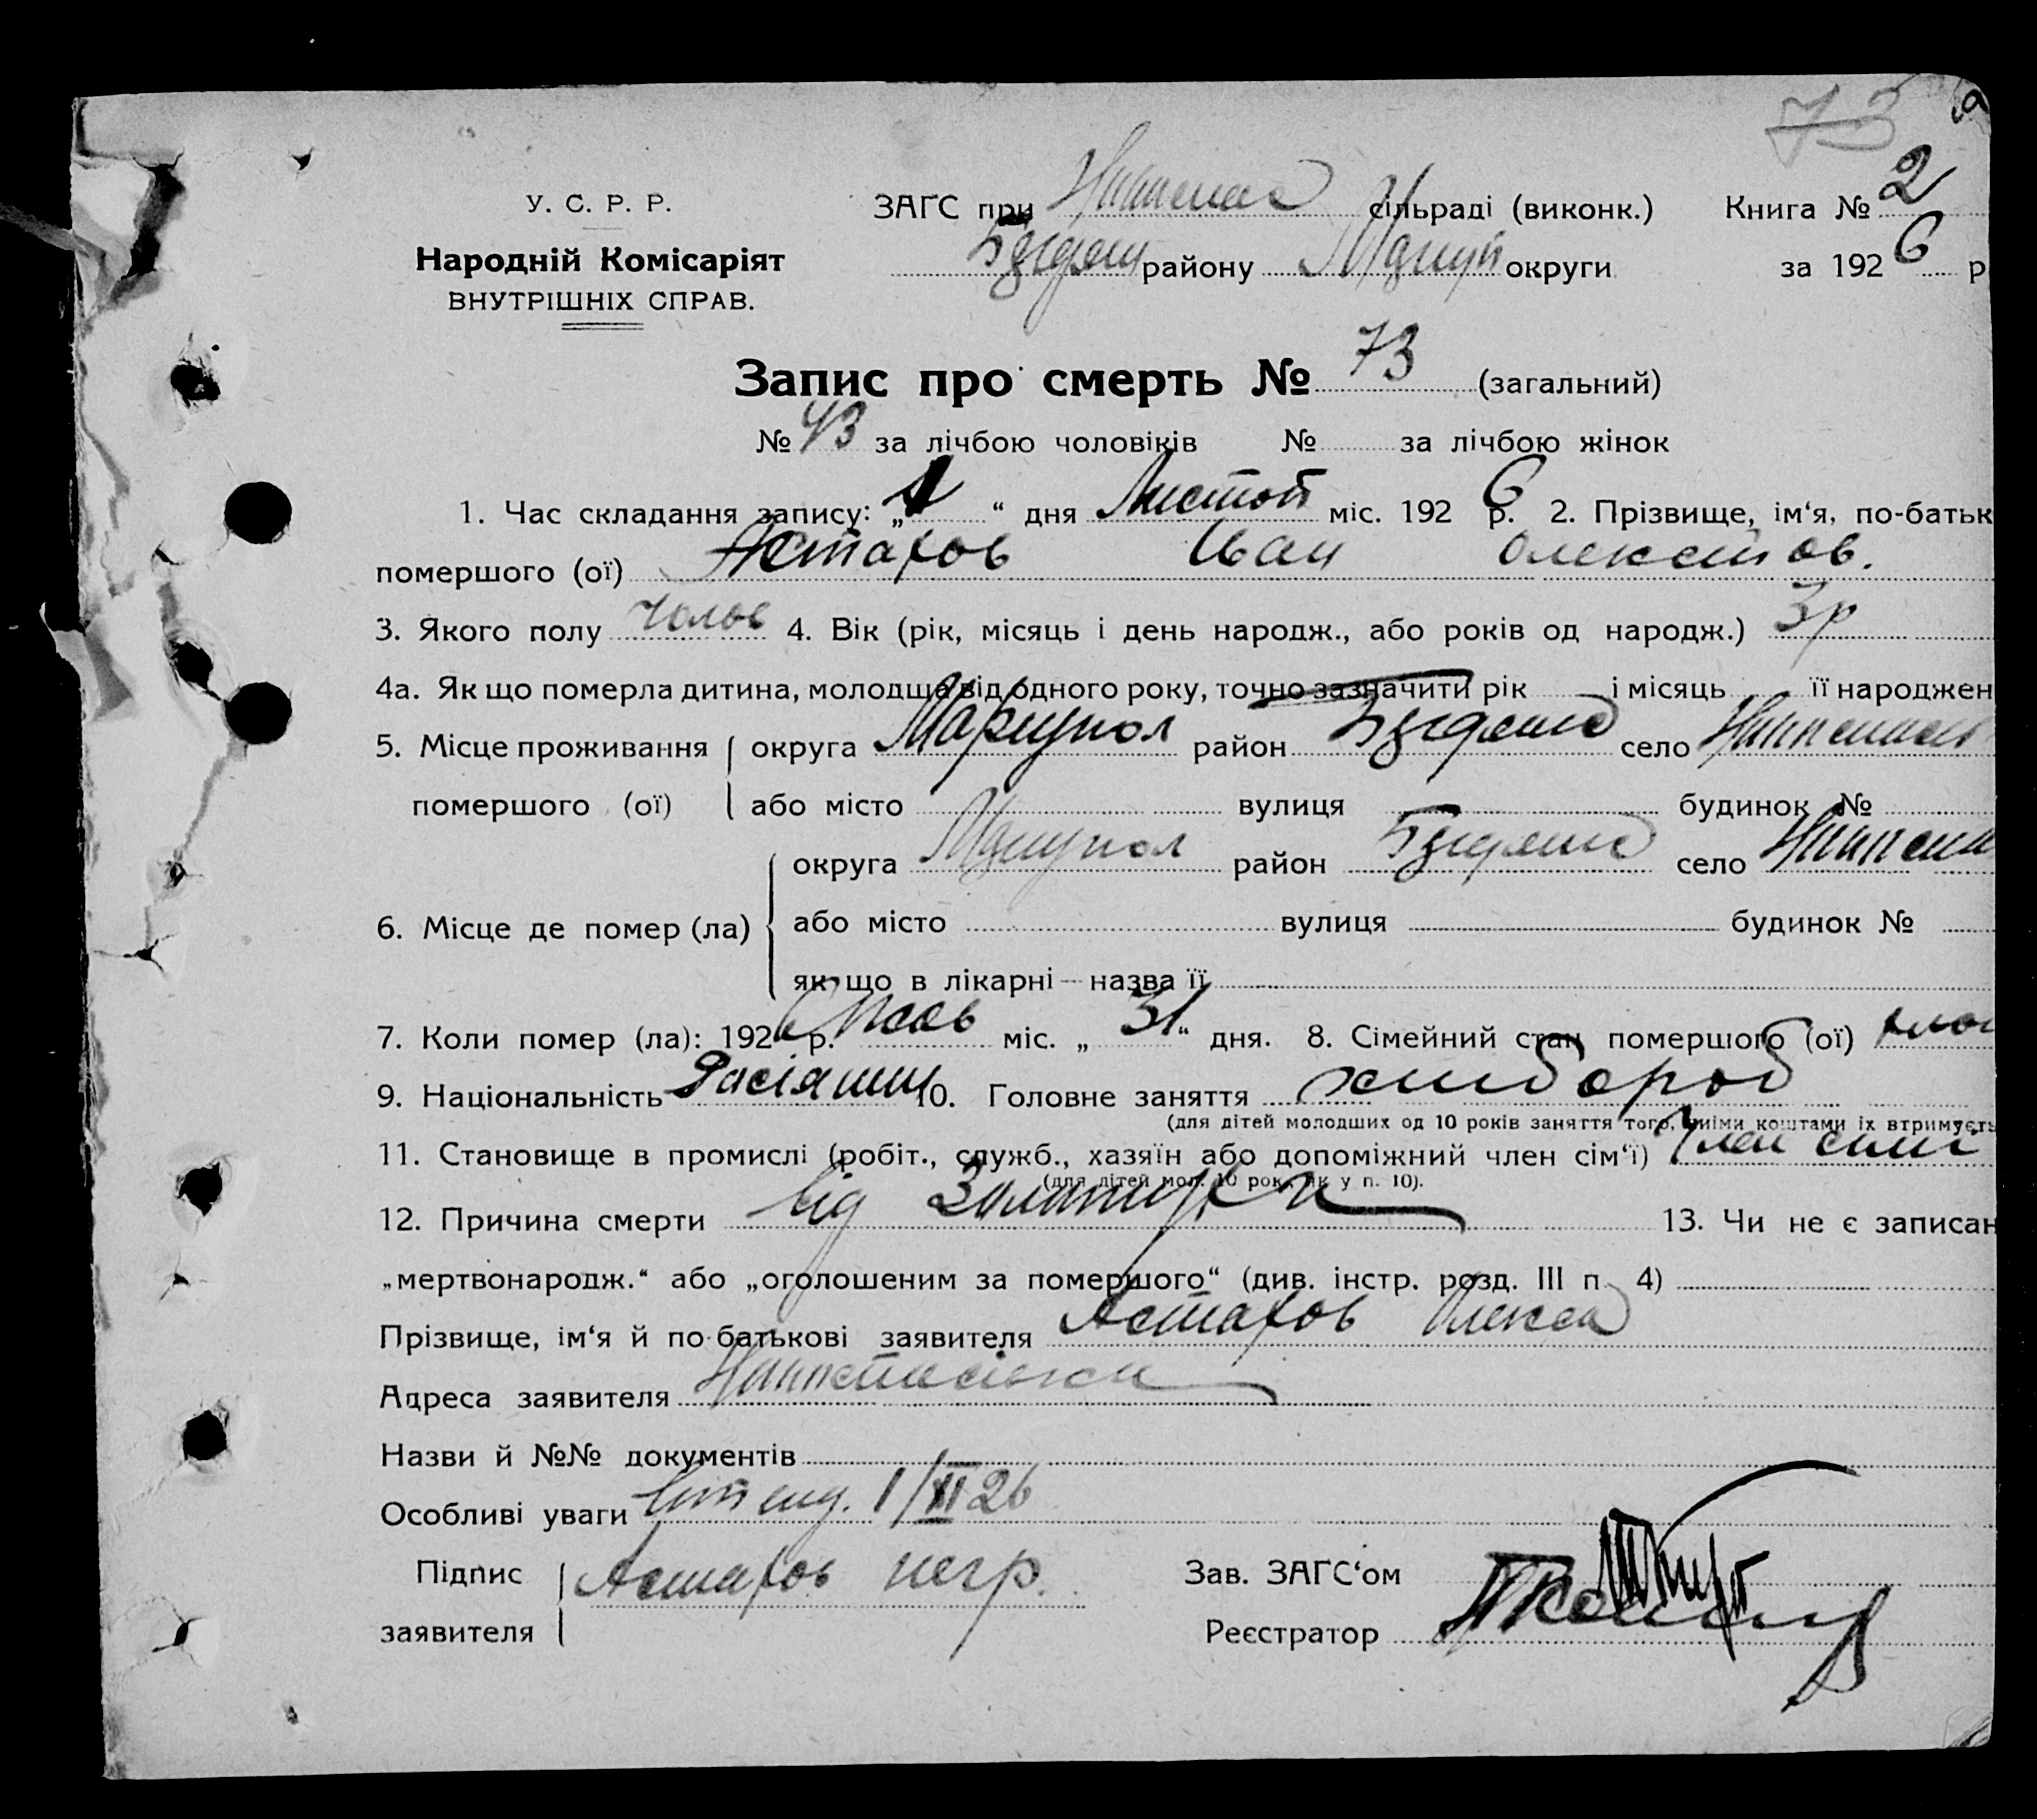 73
У. С. Р. Р. ЗАГС при сільраді (виконк.) Книга № 2
Народній Комісаріят району округи за 1926 р
ВНУТРІШНІХ СПРАВ.
Запис про смерть № 73 (загальний)
№ 43 за лічбою чоловіків № за лічбою жінок
1. Час складання запису: „1“ дня Листоп міс. 1926 р. 2. Прізвище, ім‘я, по-батьк
помершого (ої) Астахов Иван
3. Якого полу Чолов 4. Вік (рік, місяць і день народж., або років од народж.) 3 р
4а. Як що померла дитина, молодша від одного року, точно зазначити рік і місяць її народжен
5. Місце проживання округа Маріупол район село
помершого (ої) або місто вулиця будинок №
округа Маріупол район село
6. Місце де помер (ла) або місто вулиця будинок №
як що в лікарні — назва її
7. Коли помер (ла): 1926 р. Жов міс. „31“ дня. 8. Сімейний стан помершого (ої)
9. Національність Расіянин 10. Головне заняття хлибороб
(для дітей молодших од 10 років заняття того, чиїми коштами їх втримуєть
11. Становище в промислі (робіт., служб., хазяїн або допоміжний член сім‘ї) Член сими
(для дітей мол. 10 рок., як у п. 10).
12. Причина смерти від Золотухи 13. Чи не є записан
„мертвонародж.“ або „оголошеним за помершого“ (див. інстр. розд. III п. 4)
Прізвище, ім‘я й по-батькові заявителя Астахов Олекса
Адреса заявителя
Назви й №№ документів
Особливі уваги 1/XI 26
Підпис Астахов негр. Зав. ЗАГС‘ом
заявителя Реєстратор